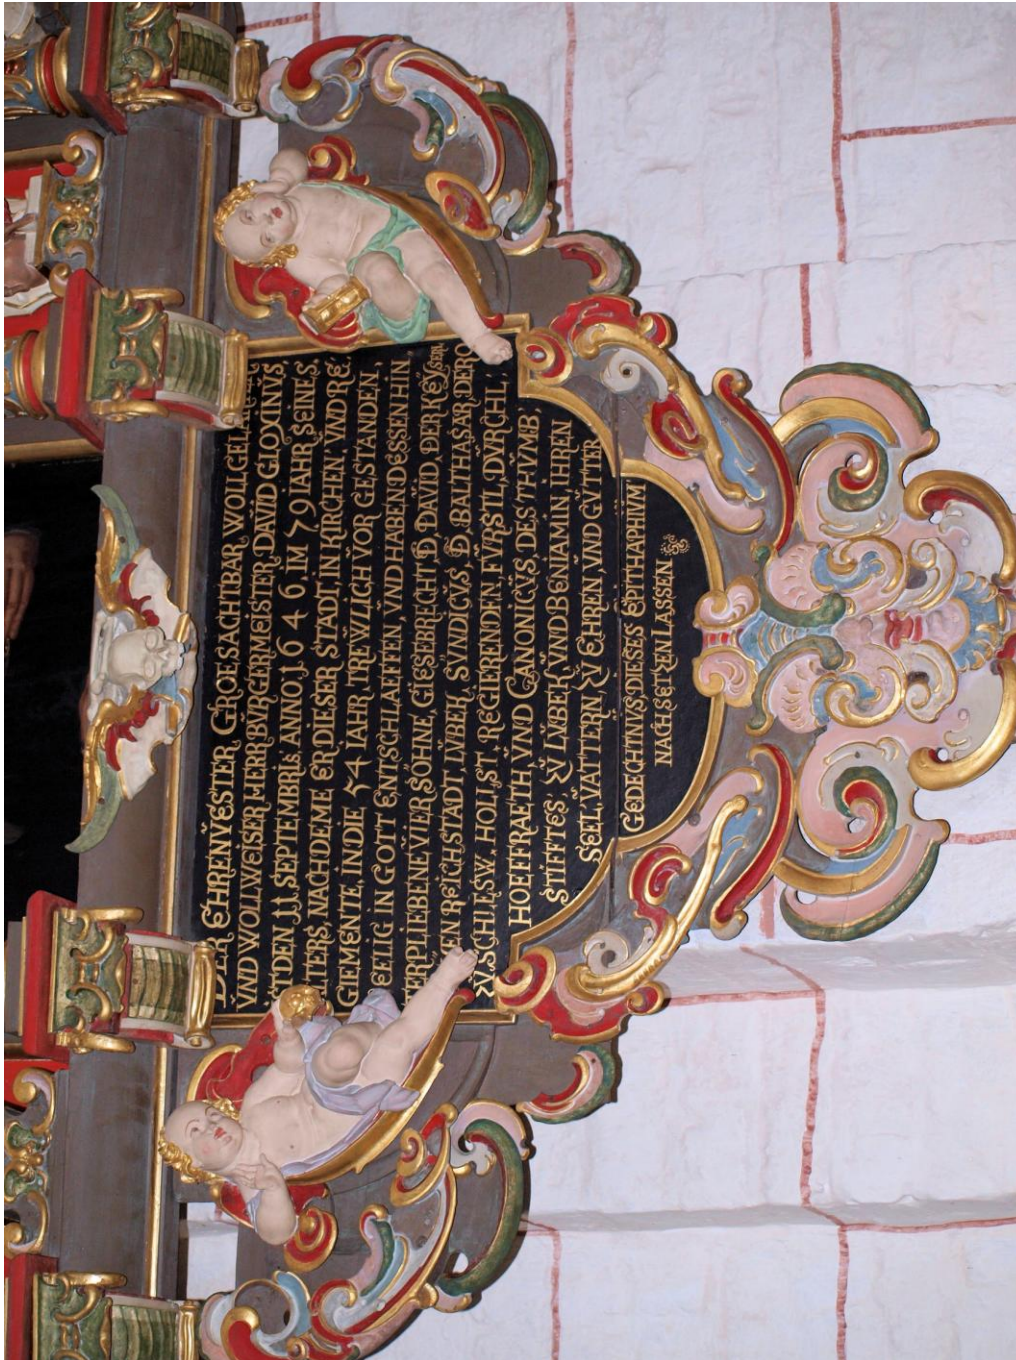 DER EHRENVESTER GROESACHTBAR WOLGEL
VND WOLLWEISER HER BVRGERMEISTER DAVID GLOXINVS,
IST DEN 11 SEPTEMBRIS, ANNO, 1646, IM 79 IAHR SEINES
ALTERS, NACHDEME ER DIESER STADT, IN KIRCHEN, VND RE,
GIMENTE, IN DIE, 54 IAHR, TREWLICH VOR GESTANDEN
SEELIG IN GOTT ENTSCHLAEFFEN, VND HABEN DESSEN HIN,
TERPLIEBENE VIER SÖHNE, GIESEBRECHT, D. DAVID, DER KEYSERL,
EN REICHSTADT, LVBEK, SYNDICVS, D. BALTHASAR DERO
ZV SCHLLESW, HOLLST, REGIERENDEN, FVRSTL, DVRCHL,
HOEFFRAETH VND CANONICVS, DES THVMB,
STIFFTES ZV LVBEK, VND BENIAMIN, IHREN
SEEL, VATTERN, ZV EHREN VND GVTTEN
GEDECHTNVS DIESES EPITHAPHIVM
NACHSETZEN LASSEN